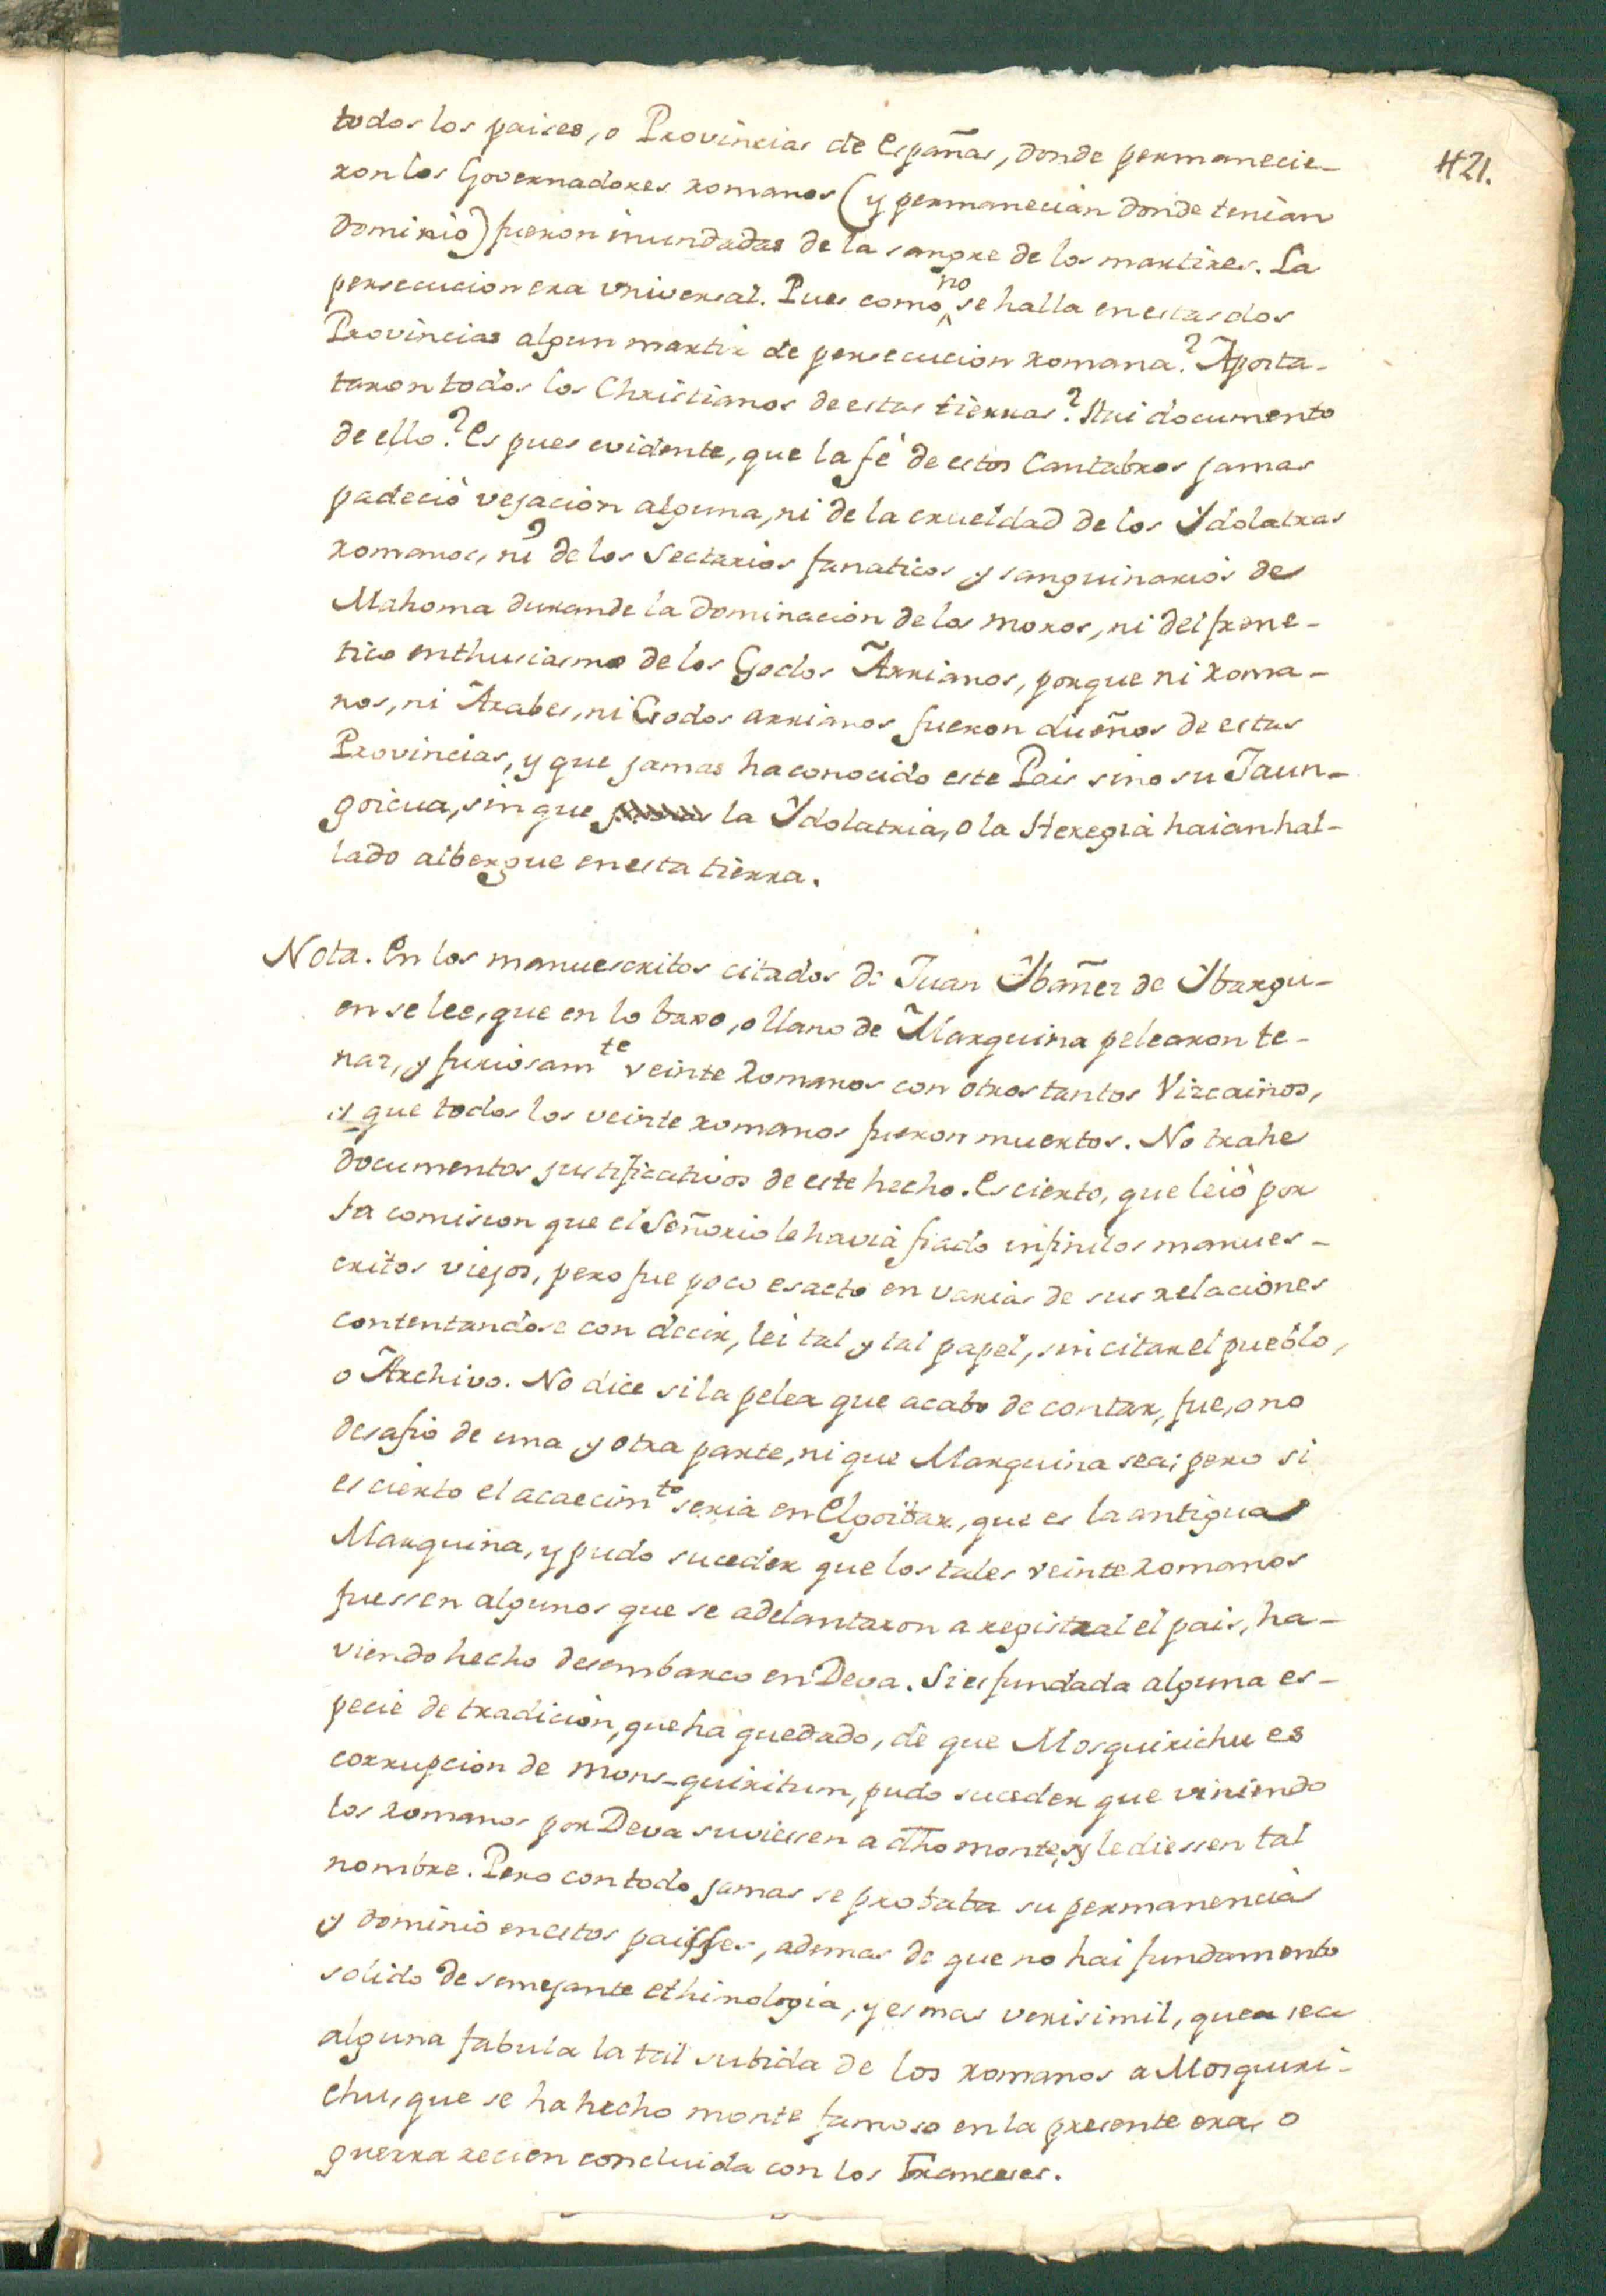 421.
todos los paises, o Provincias de Españas, donde permanecie-
ron los Governadores romanos (y permanecian donde tenian
dominio) fueron inundadas de la sangre de los martires. La
persecucion era vniversal. Pues como no se halla en estas dos
Provincias algun martir de persecucion romana? Aposta-
taron todos los Christianos de estas tierras? Hai documento
de ello? Es pues evidente, que la fé de estos Cantabros jamas
padeciò vejacion alguna, ni de la crueldad de los Ydolatras
romanos, ni de los Sectarios fanaticos y sanguinarios de
Mahoma durande la dominacion de los moros, ni del frene-
tico enthusiasmo de los Godos Arrianos, porque ni Roma-
nos, ni Arabes, ni Godos arrianos fueron dueños de estas
Provincias, y que jamas ha conocido este Pais sino su Jaun-
goicua, sin que la Ydolatria, o la Heregia haian hal-
lado albergue en esta tierra.
Nota. En los manuescritos citados de Juan Ybañez de Ybargu-
en se lee, que en lo baxo, o llano de Marquina pelearon te-
naz, y furiosamte veinte Romanos con otros tantos Vizcainos,
y que todos los veinte romanos fueron muertos. No trahe
documentos justificativos de este hecho. Es cierto, que leiò por
la comision que el Señorio le havia fiado infinitos manues-
critos viejos, pero fue poco esacto en varias de sus relaciones
contentandose con decir, lei tal y tal papel, sin citar el pueblo,
o Archivo. No dice si la pelea que acabo de contar, fue, o no
desafio de una y otra parte, ni que Marquina sea; pero si
es cierto el acaecimto seria en Elgoibar, que es la antigua
Marquina, y pudo suceder que los tales veinte Romanos
fuessen algunos que se adelantaron a registral el pais, ha-
viendo hecho desembarco en Deva. Si es fundada alguna es-
pecie de tradicion, que ha quedado, de que Mosquirichu es
corrupcion de mons-quiritum, pudo suceder que viniendo
los Romanos por Deva suviessen a dho monte, y le diessen tal
nombre. Pero con todo jamas se probata su permanencia
y dominio en estos paisses, ademas de que no hai fundamento
solido de semejante ethinologia, y es mas verisimil, que sea
alguna fabula la tal subida de los romanos a Mosquiri-
chu, que se ha hecho monte famoso en la presente era, o
guerra recien concluida con los Franceses.